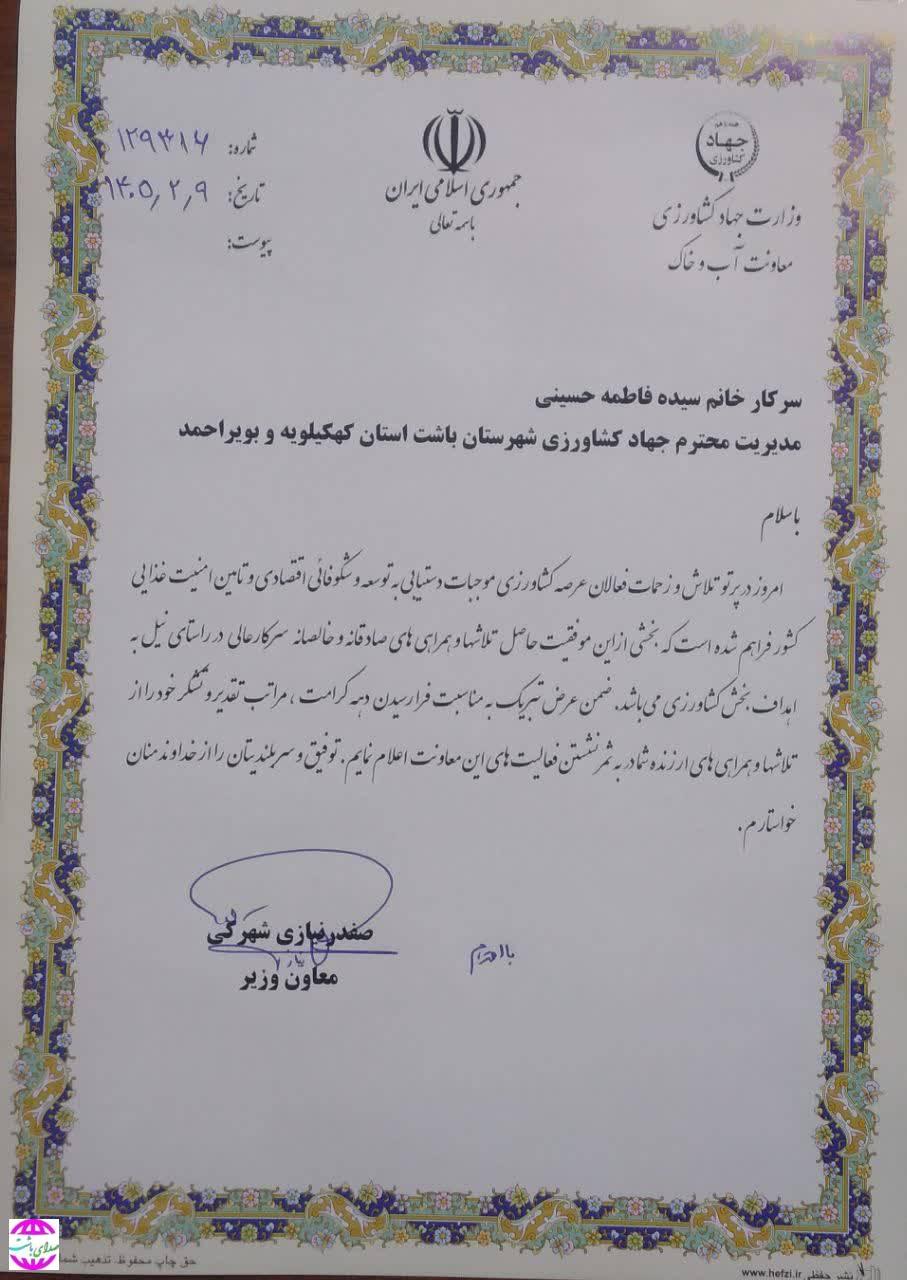 جهاد
کشاورزی
وزارت جهاد کشاورزی
معاونت آب و خاک
جمهوری اسلامی ایران
باسمه تعالی
شماره: ۱۲۹۳۱۶
تاریخ: ۱۴۰۵٫۲٫۹
پیوست:
سرکار خانم سیده فاطمه حسینی
مدیریت محترم جهاد کشاورزی شهرستان باشت استان کهکیلویه و بویراحمد
باسلام
امروز در پرتو تلاش و زحمات فعالان عرصه کشاورزی موجبات دستیابی به توسعه و شکوفائی اقتصادی و تامین امنیت غذایی
کشور فراهم شده است که بخشی از این موفقیت حاصل تلاشها و همراهی های صادقانه و خالصانه سرکارعالی در راستای نیل به
اهداف بخش کشاورزی می باشد. ضمن عرض تبریک به مناسبت فرارسیدن دهه کرامت ، مراتب تقدیر و تشکر خود را از
تلاشها و همراهی های ارزنده شما در به ثمر نشستن فعالیت های این معاونت اعلام نمایم. توفیق و سربلندیتان را از خداوند منان
خواستارم.
بااحترام
صفدر نیازی شهرکی
معاون وزیر
صدای باشت
حق چاپ محفوظ. تذهیب
نشر حفظی www.hefzi.ir